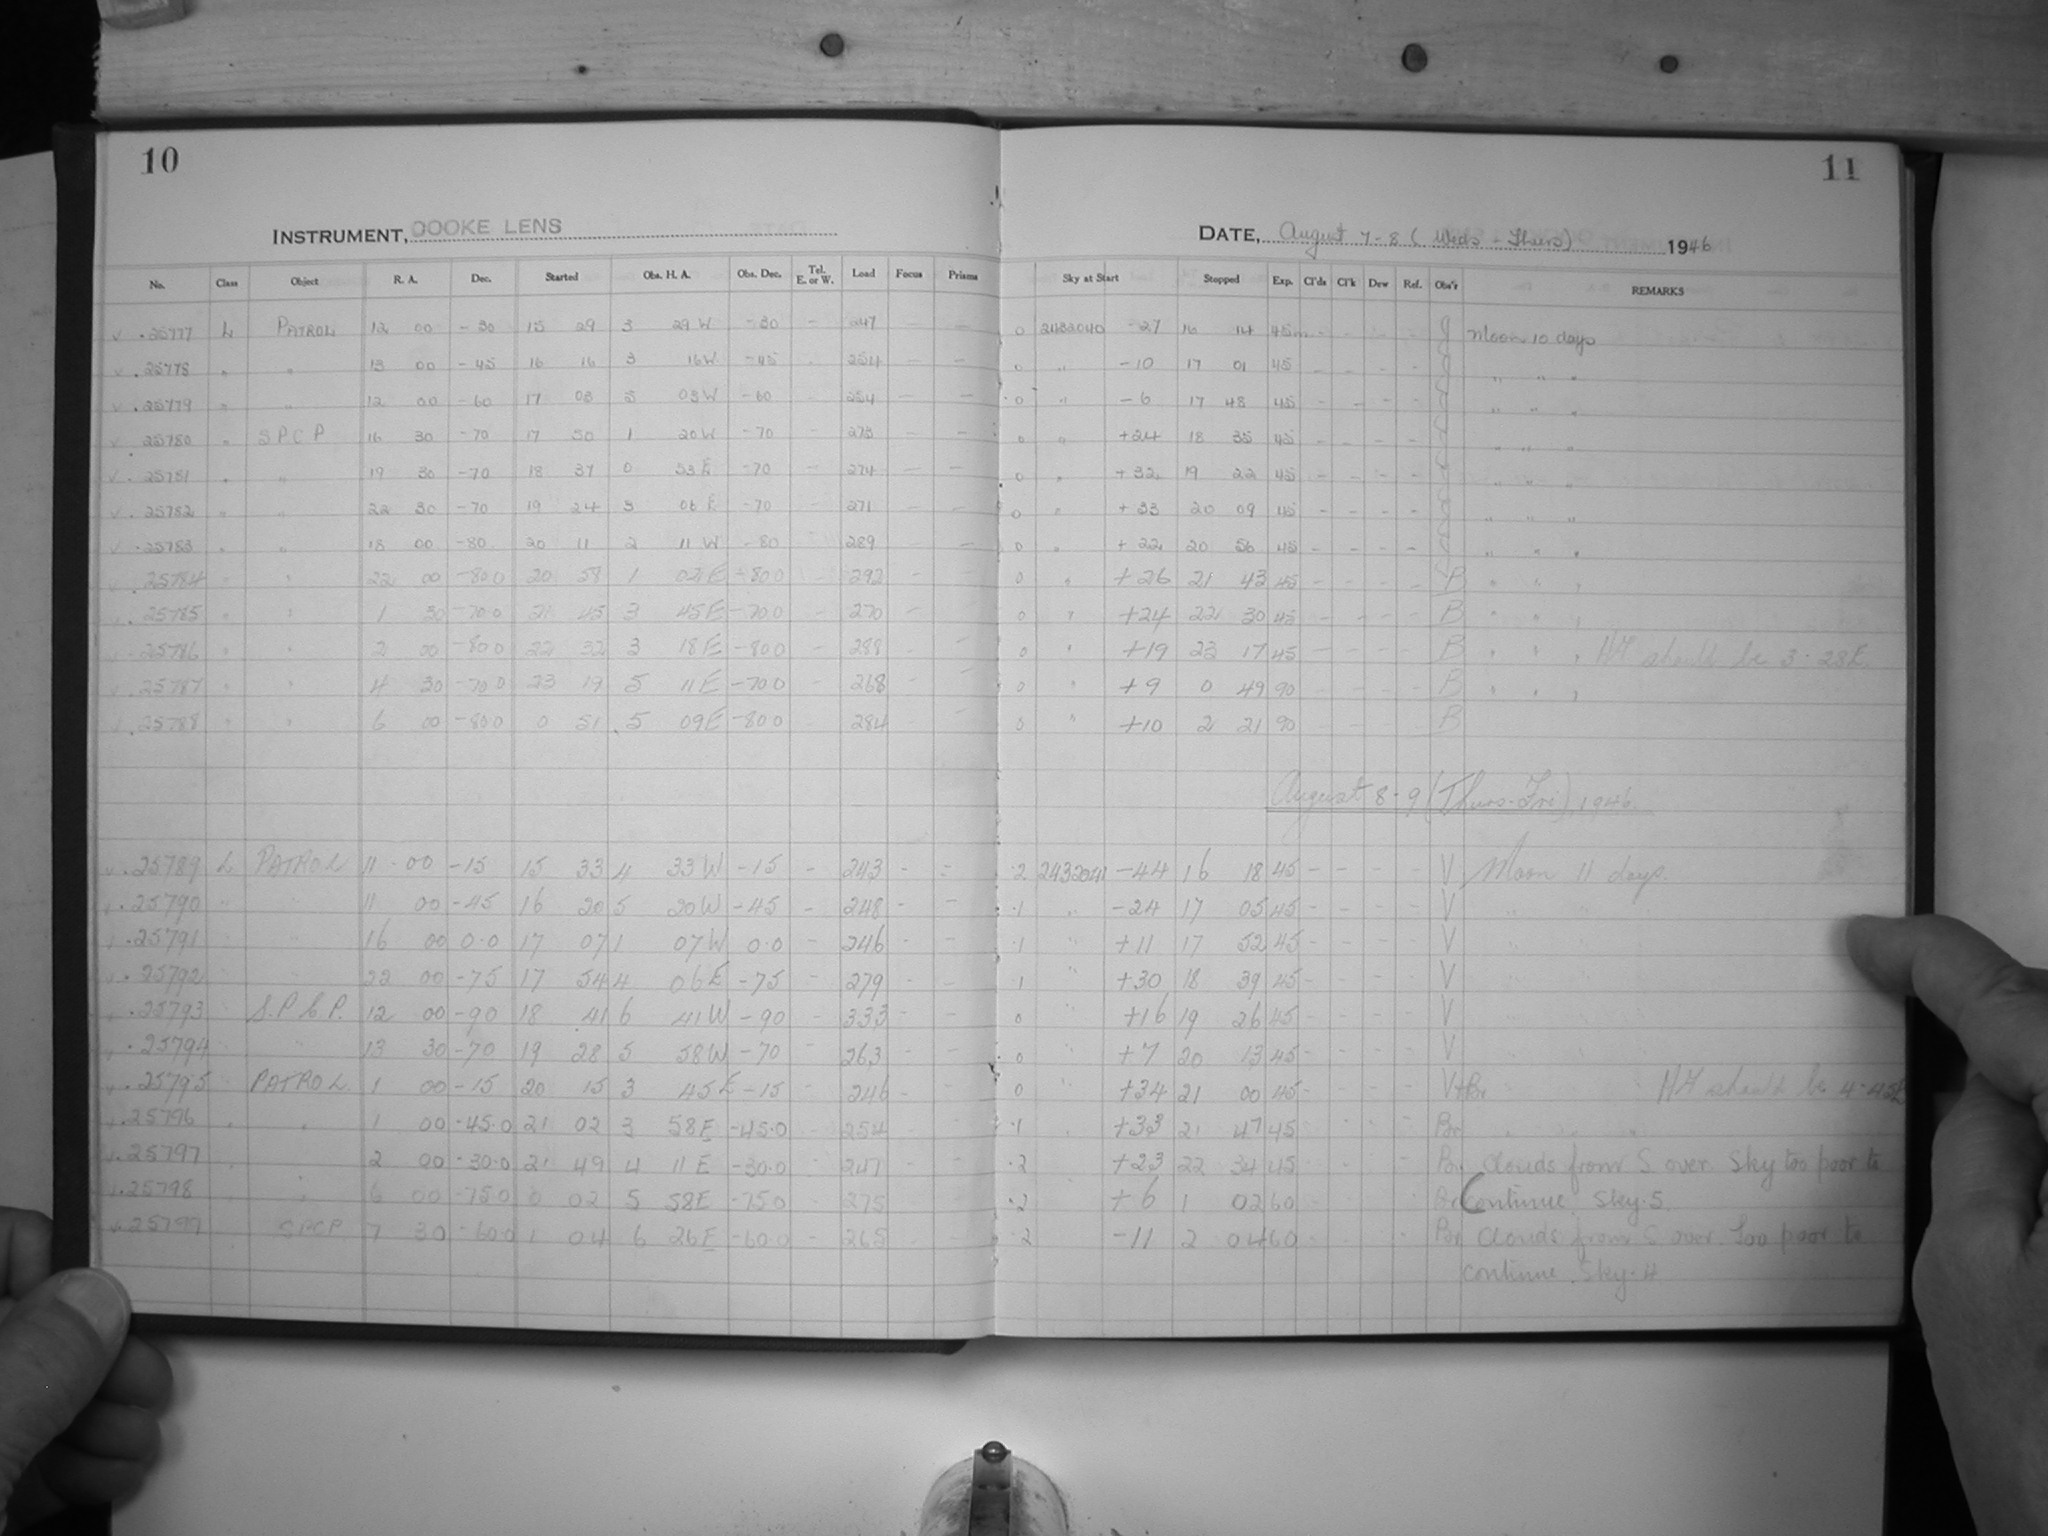 10 11
INSTRUMENT, COOKE LENS DATE, August 7-8 (Weds - Thurs) 1946
No. Class Object R. A. Dec. Started Obs. H. A. Obs. Dec. Tel. E. or W. Load Focus Prisms Sky at Start Stopped Exp. Cl'ds Cl'k Dew Ref. Obs'r REMARKS
v .25777 L PATROL 12 00 -30 15 29 3 29 W -30 - 247 - - 0 2432040 -27 16 14 45m - - - - J Moon 10 days
v .25778 " " 13 00 -45 16 16 3 16 W -45 254 - - 0 " -10 17 01 45 - - - - J " " "
v .25779 " " 12 00 -60 17 03 5 03 W -60 - 254 - - 0 " -6 17 48 45 - - - - J " " "
v 25780 " S P C P 16 30 -70 17 50 1 20 W -70 - 273 - - 0 " +24 18 35 45 - - - - J " " "
v .25781 " " 19 30 -70 18 37 0 53 E -70 - 274 - - 0 " +32 19 22 45 - - - - J " " "
v .25782 " " 22 30 -70 19 24 3 06 E -70 - 271 - - 0 " +33 20 09 45 - - - - J " " "
v .25783 " " 18 00 -80 20 11 2 11 W -80 - 289 - 0 " +22 20 56 45 - - - - J " " "
.25784 " " 22 00 -80.0 20 58 1 02 E -80.0 - 292 - 0 " +26 21 43 45 - - - - B " " "
.25785 " " 1 30 -70.0 21 45 3 45 E -70.0 - 270 - 0 " +24 22 30 45 - - - - B " " "
.25786 " " 2 00 -80.0 22 32 3 18 E -80.0 - 288 - 0 " +19 23 17 45 - - - - B " " " HA should be 3-28E
.25787 " " 4 30 -70.0 23 19 5 11 E -70.0 - 268 - 0 " +9 0 49 90 - - - - B " " "
.25788 " " 6 00 -80.0 0 51 5 09 E -80.0 - 284 - 0 " +10 2 21 90 - - - - B
August 8-9 (Thurs-Fri), 1946
v .25789 L PATROL 11 00 -15 15 33 4 33 W -15 - 243 - - .2 2432041 -44 16 18 45 - - - - V Moon 11 days.
.25790 " " 11 00 -45 16 20 5 20 W -45 - 248 - - .1 " -24 17 05 45 - - - - V " "
.25791 " " 16 00 0.0 17 07 1 07 W 0.0 - 246 - - .1 " +11 17 52 45 - - - - V " "
.25792 " " 22 00 -75 17 54 4 06 E -75 - 279 - - .1 " +30 18 39 45 - - - - V
.25793 S. P. C. P. 12 00 -90 18 41 6 41 W -90 - 333 - - 0 +16 19 26 45 - - - - V
.25794 " 13 30 -70 19 28 5 58 W -70 - 263 - - 0 " +7 20 13 45 - - - - V
.25795 PATROL 1 00 -15 20 15 3 45 E -15 246 - 0 " +34 21 00 45 - V+Br HA should be 4-45E
.25796 " " 1 00 -45.0 21 02 3 58 E -45.0 254 .1 +33 21 47 45 Br
.25797 " 2 00 -30.0 21 49 4 11 E -30.0 247 .2 +23 22 34 45 Br Clouds from S over. Sky too poor to
.25798 " 6 00 -75.0 0 02 5 58 E -75.0 275 .2 +6 1 02 60 Br Continue. Sky .5
.25799 SPCP 7 30 -60.0 1 04 6 26 E -60.0 265 .2 -11 2 04 60 Br Clouds from S over. Too poor to
continue. Sky .4